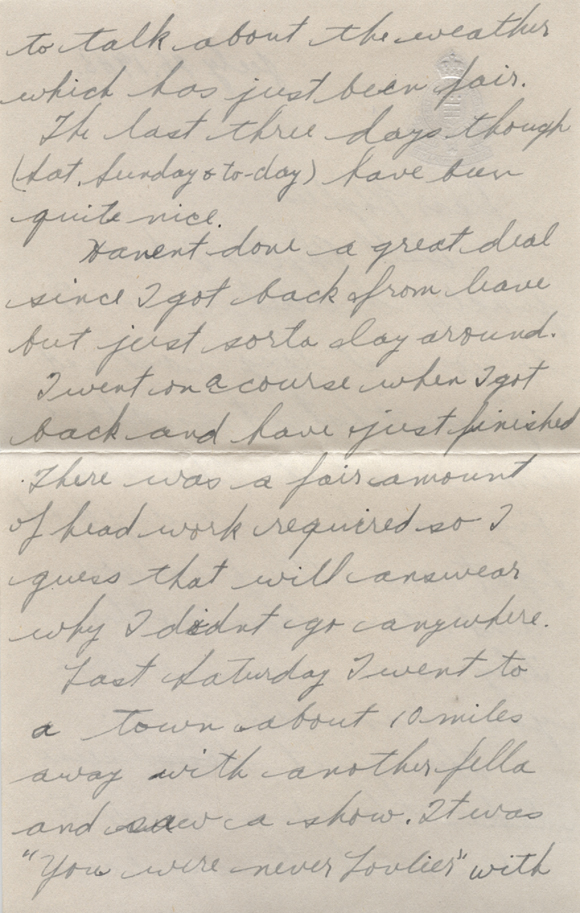 to talk about the weather
which has just been fair.
The last three days though
(Sat, Sunday & to-day) have been
quite nice.
Havent done a great deal
since I got back from leave
but just sorta lay around.
I went on a course when I got
back and have just finished
There was a fair amount
of head work required so I
guess that will answear
why I didnt go anywhere.
Last Saturday I went to
a town about 10 miles
away with another fella
and saw a show. It was
"You were never Lovlier" with